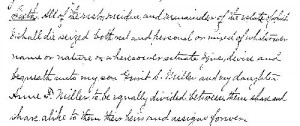 Sixth. All of the rest, residue and remainder of the estate of which
I shall die seized both real and personal or mixed of whatsoever
name or nature or wheresoever situate I give, devise and
bequeath unto my son Ernest A. Miller and my daughter
Anne F. Miller to be equally divided between them share and
share alike to them their heirs and assigns forever